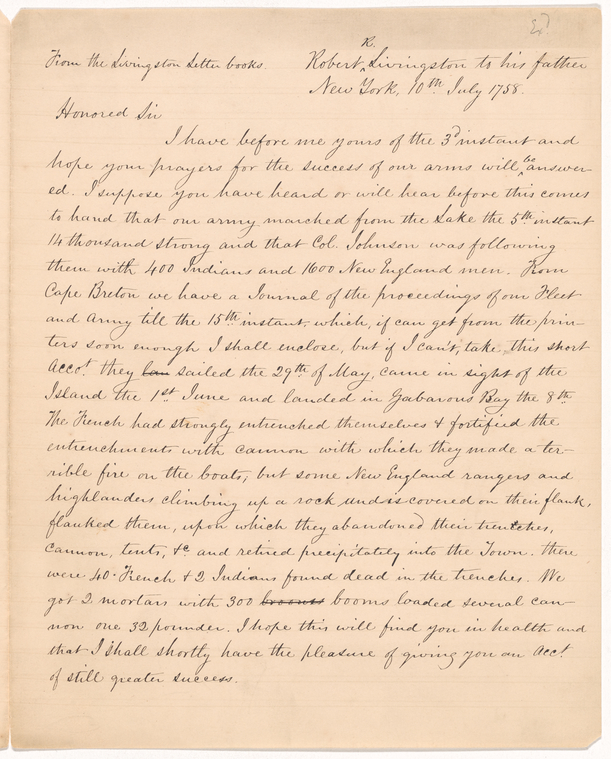 From the Livingston Letter books.
Robert R. Livingston to his father
New York, 10th July 1758.
Honored Sir
I have before me yours of the 3d instant and
hope your prayers for the success of our arms will be answer-
ed. I suppose you have heard or will hear before this comes
to hand that our army marched from the Lake the 5th instant
14 thousand strong and that Col. Johnson was following
them with 400 Indians and 1600 New England men. From
Cape Breton we have a Journal of the proceedings of our Fleet
and Army till the 15th instant, which, if can get from the prin-
ters soon enough I shall enclose, but if I can't, take this short
Acct. they lan sailed the 29th of May, came in sight of the
Island the 1st June and landed in Gabarous Bay the 8th
The French had strongly entrenched themselves & fortified the
entrenchments with cannon with which they made a ter-
rible fire on the boats, but some New England rangers and
highlanders climbing up a rock undiscovered on their flank,
flanked them, upon which they abandoned their trenches,
cannon, tents, &c and retired precipitately into the Town. there
were 40 French & 2 Indians found dead in the trenches. We
got 2 mortars with 300 booms loaded several can-
non one 32 pounder. I hope this will find you in health and
that I shall shortly have the pleasure of giving you an Acct.
of still greater success.